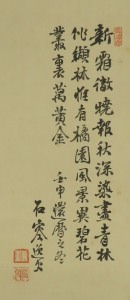 新霜徹曉報秋深染盡青林
作纈林惟有橘園風景異碧花
叢裏萬黃金 壬申還曆之冬
石